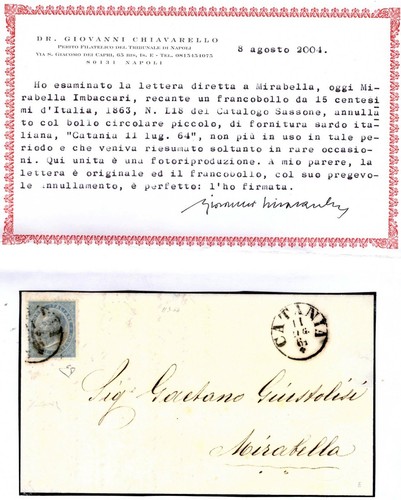 DR. GIOVANNI CHIAVARELLO
PERITO FILATELICO DEL TRIBUNALE DI NAPOLI
VIA S. GIACOMO DEI CAPRI, 65 BIS, IS. E - TEL. 0815454075
80131 NAPOLI
8 agosto 2004.
Ho esaminato la lettera diretta a Mirabella, oggi Mi-
rabella Imbaccari, recante un francobollo da 15 centesi
mi d'Italia, 1863, N. L18 del Catalogo Sassone, annulla
to col bollo circolare piccolo, di fornitura sardo ita-
liana, "Catania 11 lug. 64", non più in uso in tale pe-
riodo e che veniva riesumato soltanto in rare occasio-
ni. Qui unita è una fotoriproduzione. A mio parere, la
lettera è originale ed il francobollo, col suo pregevo-
le annullamento, è perfetto: l'ho firmata.
CATANIA
11
Sig. Gaetano Giustolisi
Mirabella